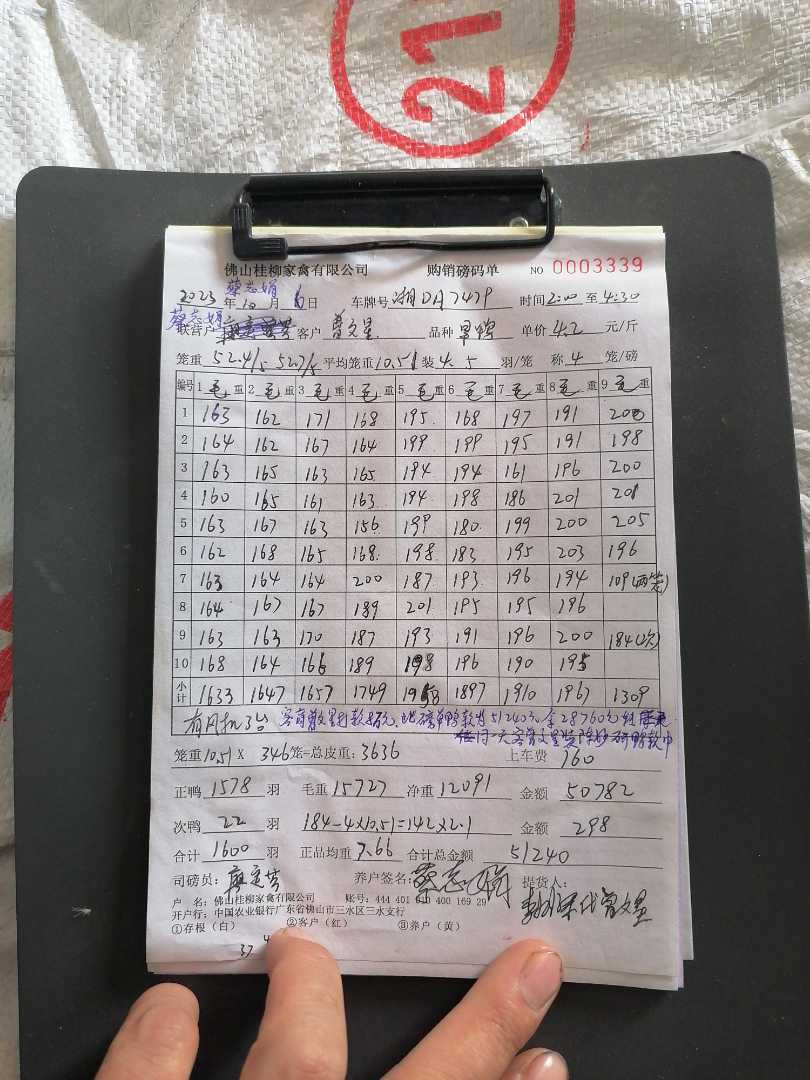 21
佛山桂柳家禽有限公司 购销磅码单 NO 0003339
蔡志娟
2023年10月6日 车牌号 湘DA7479 时间2:00至4:30
蔡志娟
联营户 客户 曾文星 品种 单价4.2元/斤
笼重 52.4/5 52.7/5 平均笼重10.51 装4.5羽/笼 称4笼/磅
编号 1毛重 2毛重 3毛重 4毛重 5毛重 6毛重 7毛重 8毛重 9毛重
1 163 162 171 168 195 168 197 191 200
2 164 162 167 164 199 199 195 191 198
3 163 165 163 165 194 194 161 196 200
4 160 165 161 163 194 198 186 201 201
5 163 167 163 156 199 180 199 200 205
6 162 168 165 168 198 183 195 203 196
7 163 164 164 200 187 193 196 194 109(两笼)
8 164 167 167 189 201 195 195 196
9 163 163 170 187 193 191 196 200 184(次)
10 168 164 166 189 198 196 190 195
小计 1633 1647 1657 1749 1958 1897 1910 1967 1309
有风机3台 客商曾文星打款8万元，此磅单鸭款为51240元，余28760元
笼重10.51×346笼=总皮重:3636 上车费 160
正鸭1578羽 毛重15727 净重12091 金额50782
次鸭22羽 184-4×10.51=142×2.1 金额298
合计1600羽 正品均重7.66 合计总金额51240
司磅员: 养户签名:蔡志娟 提货人:
代曾文星
户 名: 佛山桂柳家禽有限公司 账号: 444 401 010 400 169 29
开户行: 中国农业银行广东省佛山市三水区三水支行
①存根（白） ②客户（红） ③养户（黄）
37